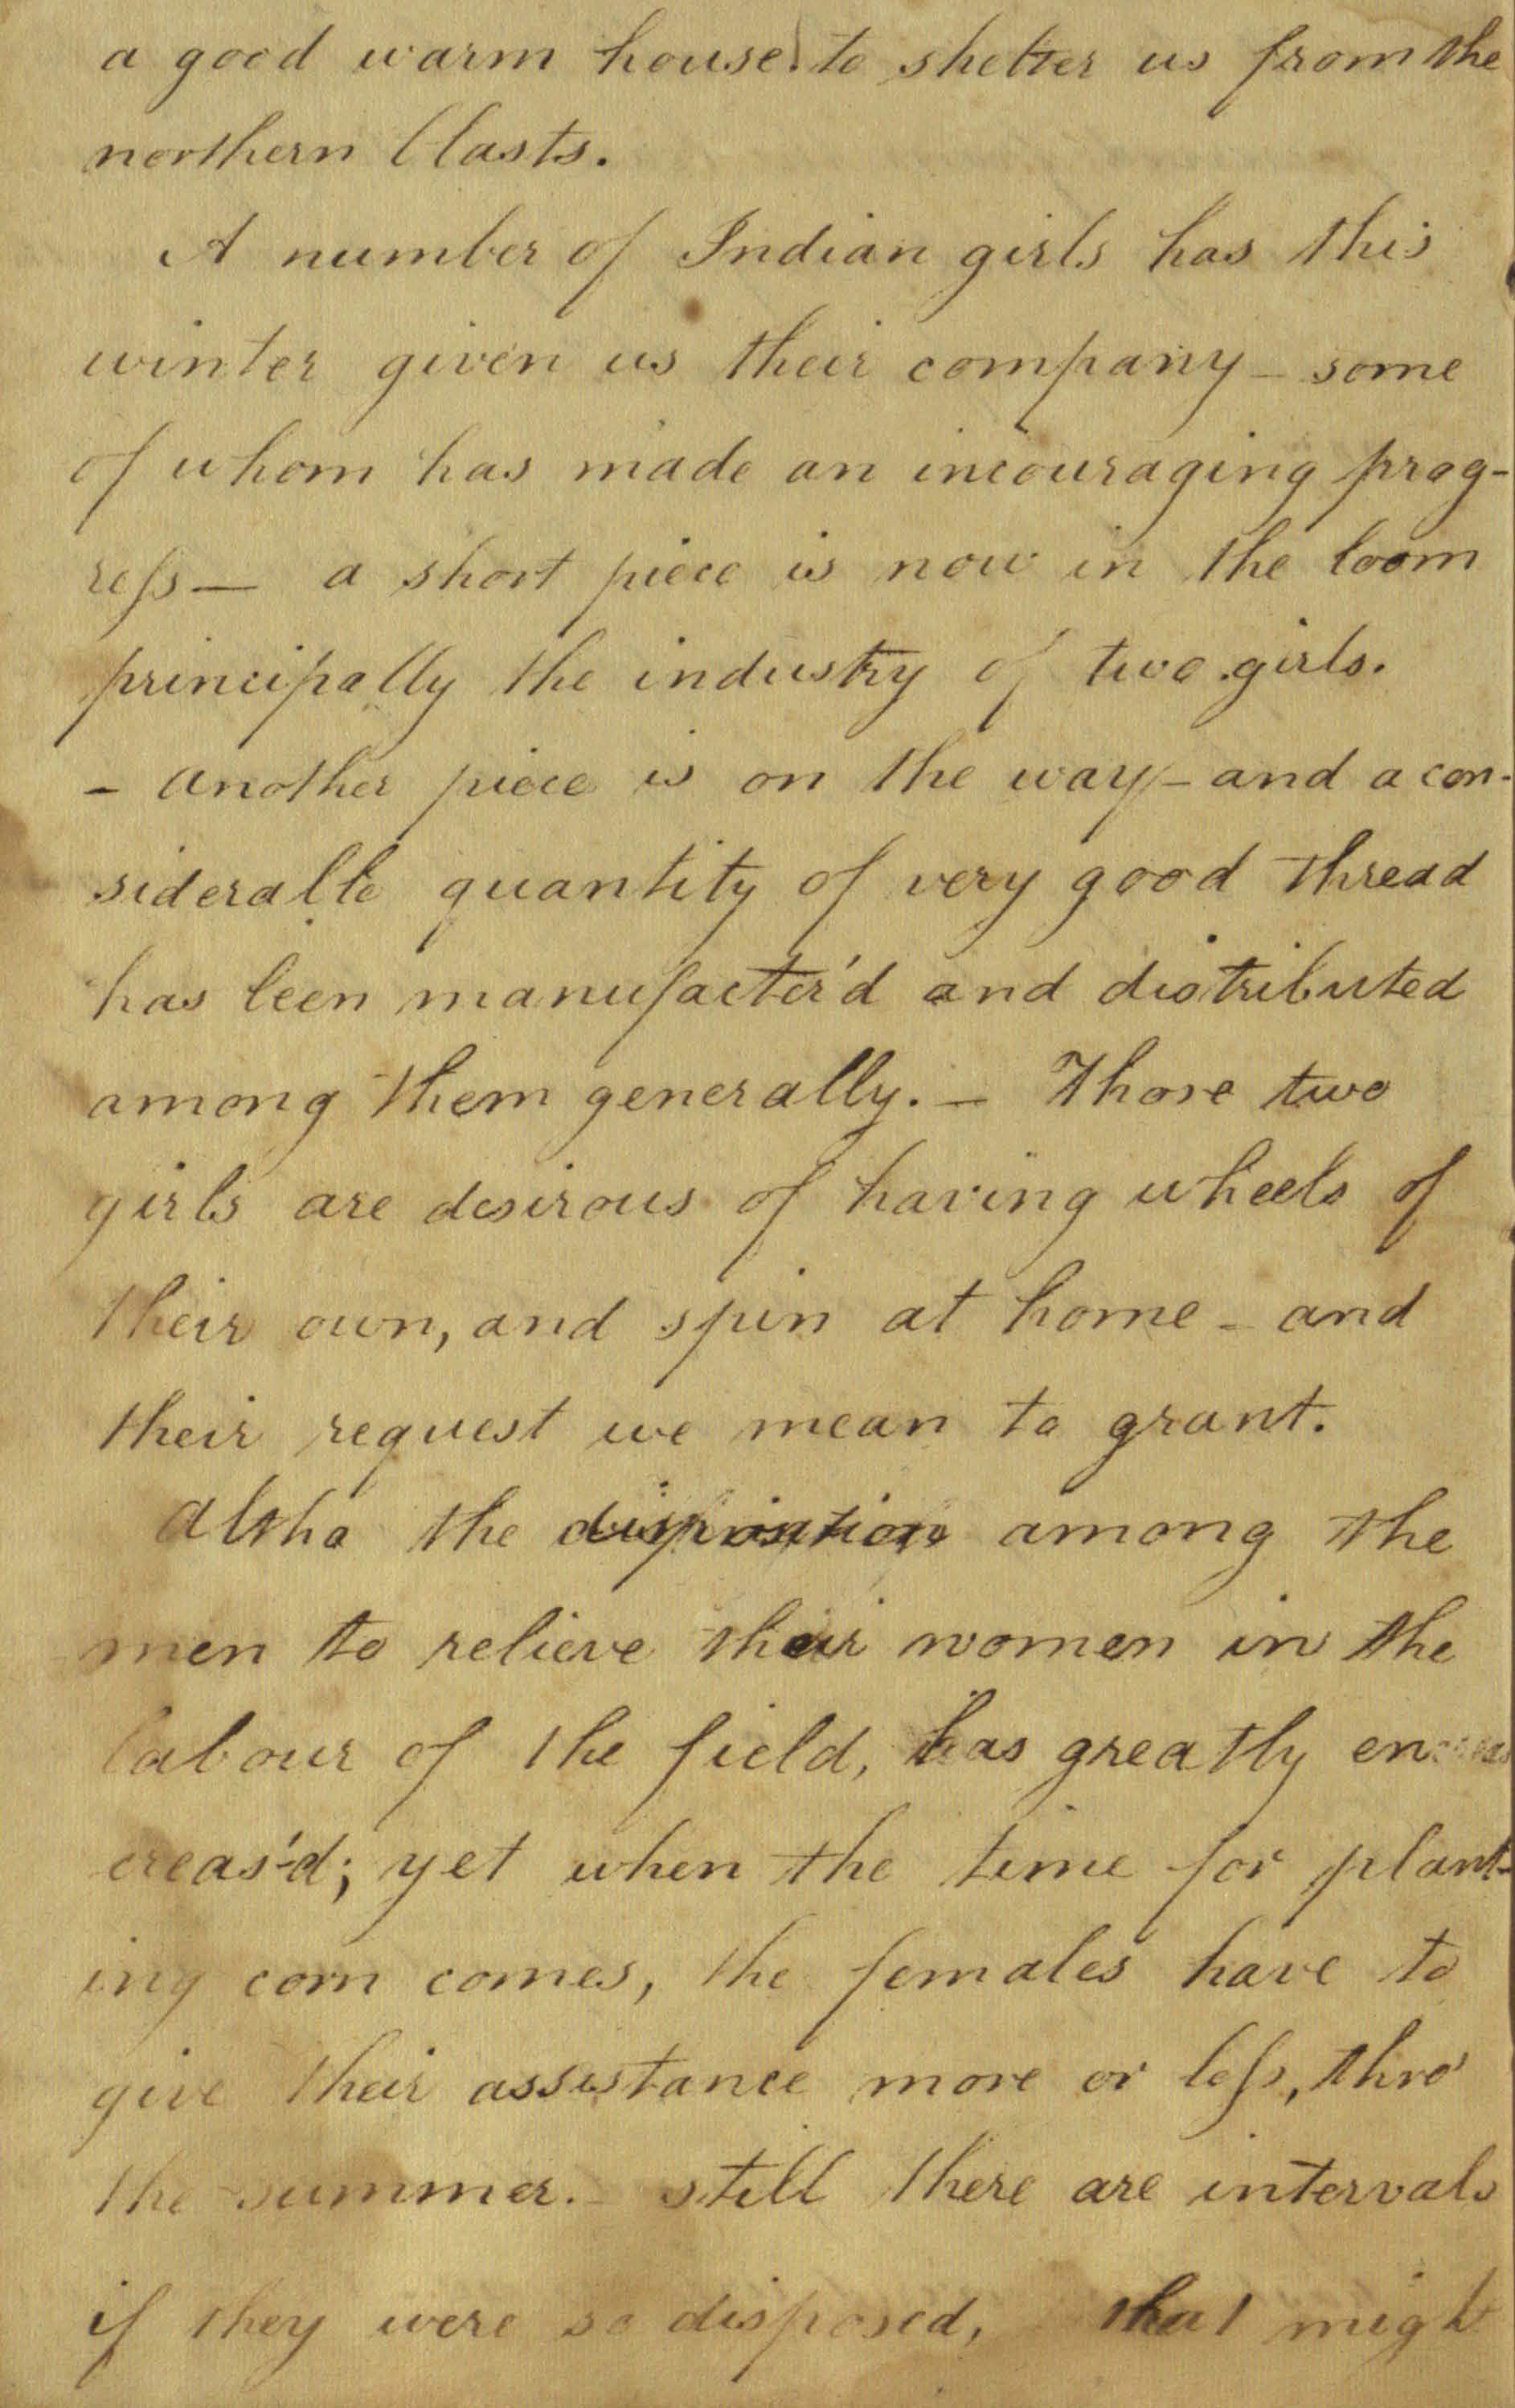 a good warm house to shelter us from the
northern blasts.
A number of Indian girls has this
winter given us their company – some
of whom has made an incouraging prog-
ress — a short piece is now in the loom
principally the industry of two girls.
– another piece is on the way – and a con-
siderable quantity of very good thread
has been manufacter'd and distributed
among them generally. – Those two
girls are desirous of having wheels of
their own, and spin at home – and
their request we mean to grant.
altho the disposition among the
men to relieve their women in the
labour of the field, has greatly en
creas'd; yet when the time for plant-
ing corn comes, the females have to
give their assistance more or less, thro'
the summer. – still there are intervals
if they were so disposed, that might